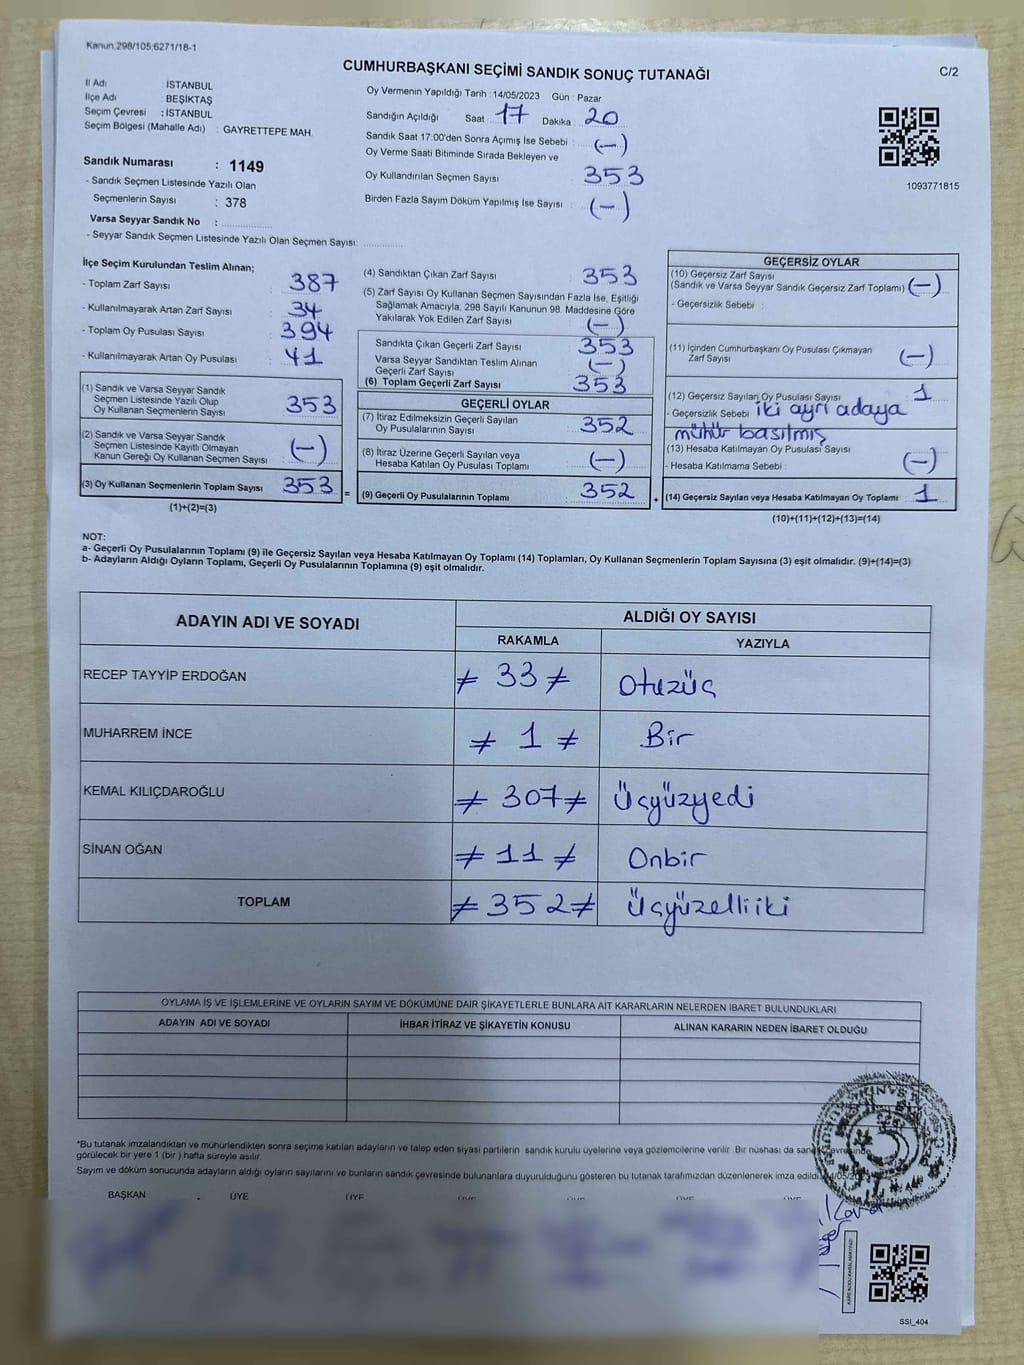 Kanun 298/105;6271/18-1
CUMHURBAŞKANI SEÇİMİ SANDIK SONUÇ TUTANAĞI
C/2
İl Adı : İSTANBUL
İlçe Adı : BEŞİKTAŞ
Seçim Çevresi : İSTANBUL
Seçim Bölgesi (Mahalle Adı) : GAYRETTEPE MAH.
Sandık Numarası : 1149
- Sandık Seçmen Listesinde Yazılı Olan
Seçmenlerin Sayısı : 378
Varsa Seyyar Sandık No :
- Seyyar Sandık Seçmen Listesinde Yazılı Olan Seçmen Sayısı:
Oy Vermenin Yapıldığı Tarih : 14/05/2023 Gün : Pazar
Sandığın Açıldığı Saat : 17 Dakika : 20
Sandık Saat 17:00'den Sonra Açımış İse Sebebi : (—)
Oy Verme Saati Bitiminde Sırada Bekleyen ve
Oy Kullandırılan Seçmen Sayısı : 353
Birden Fazla Sayım Döküm Yapılmış İse Sayısı : (—)
1093771815
İlçe Seçim Kurulundan Teslim Alınan;
- Toplam Zarf Sayısı : 387
- Kullanılmayarak Artan Zarf Sayısı : 34
- Toplam Oy Pusulası Sayısı : 394
- Kullanılmayarak Artan Oy Pusulası : 41
(1) Sandık ve Varsa Seyyar Sandık
Seçmen Listesinde Yazılı Olup
Oy Kullanan Seçmenlerin Sayısı : 353
(2) Sandık ve Varsa Seyyar Sandık
Seçmen Listesinde Kayıtlı Olmayan
Kanun Gereği Oy Kullanan Seçmen Sayısı : (—)
(3) Oy Kullanan Seçmenlerin Toplam Sayısı : 353
(1)+(2)=(3)
=
(4) Sandıktan Çıkan Zarf Sayısı : 353
(5) Zarf Sayısı Oy Kullanan Seçmen Sayısından Fazla İse, Eşitliği
Sağlamak Amacıyla, 298 Sayılı Kanunun 98. Maddesine Göre
Yakılarak Yok Edilen Zarf Sayısı : (—)
Sandıkta Çıkan Geçerli Zarf Sayısı : 353
Varsa Seyyar Sandıktan Teslim Alınan
Geçerli Zarf Sayısı : (—)
(6) Toplam Geçerli Zarf Sayısı : 353
GEÇERLİ OYLAR
(7) İtiraz Edilmeksizin Geçerli Sayılan
Oy Pusulalarının Sayısı : 352
(8) İtiraz Üzerine Geçerli Sayılan veya
Hesaba Katılan Oy Pusulası Toplamı : (—)
(9) Geçerli Oy Pusulalarının Toplamı : 352
+
GEÇERSİZ OYLAR
(10) Geçersiz Zarf Sayısı
(Sandık ve Varsa Seyyar Sandık Geçersiz Zarf Toplamı) (—)
- Geçersizlik Sebebi :
(11) İçinden Cumhurbaşkanı Oy Pusulası Çıkmayan
Zarf Sayısı : (—)
(12) Geçersiz Sayılan Oy Pusulası Sayısı : 1
- Geçersizlik Sebebi : iki ayrı adaya
mühür basılmış
(13) Hesaba Katılmayan Oy Pusulası Sayısı : (—)
- Hesaba Katılmama Sebebi :
(14) Geçersiz Sayılan veya Hesaba Katılmayan Oy Toplamı : 1
(10)+(11)+(12)+(13)=(14)
NOT:
a- Geçerli Oy Pusulalarının Toplamı (9) ile Geçersiz Sayılan veya Hesaba Katılmayan Oy Toplamı (14) Toplamları, Oy Kullanan Seçmenlerin Toplam Sayısına (3) eşit olmalıdır. (9)+(14)=(3)
b- Adayların Aldığı Oyların Toplamı, Geçerli Oy Pusulalarının Toplamına (9) eşit olmalıdır.
ADAYIN ADI VE SOYADI
ALDIĞI OY SAYISI
RAKAMLA YAZIYLA
RECEP TAYYİP ERDOĞAN ≠ 33 ≠ Otuzüç
MUHARREM İNCE ≠ 1 ≠ Bir
KEMAL KILIÇDAROĞLU ≠ 307 ≠ Üçyüzyedi
SİNAN OĞAN ≠ 11 ≠ Onbir
TOPLAM ≠ 352 ≠ Üçyüzelliiki
OYLAMA İŞ VE İŞLEMLERİNE VE OYLARIN SAYIM VE DÖKÜMÜNE DAİR ŞİKAYETLERLE BUNLARA AİT KARARLARIN NELERDEN İBARET BULUNDUKLARI
ADAYIN ADI VE SOYADI İHBAR İTİRAZ VE ŞİKAYETİN KONUSU ALINAN KARARIN NEDEN İBARET OLDUĞU
*Bu tutanak imzalandıktan ve mühürlendikten sonra seçime katılan adayların ve talep eden siyasi partilerin sandık kurulu üyelerine veya gözlemcilerine verilir. Bir nüshası da sandık çevresinde
görülecek bir yere 1 (bir ) hafta süreyle asılır.
Sayım ve döküm sonucunda adayların aldığı oyların sayılarını ve bunların sandık çevresinde bulunanlara duyurulduğunu gösteren bu tutanak tarafımızdan düzenlenerek imza edildi.
BAŞKAN ÜYE ÜYE
SSI_404